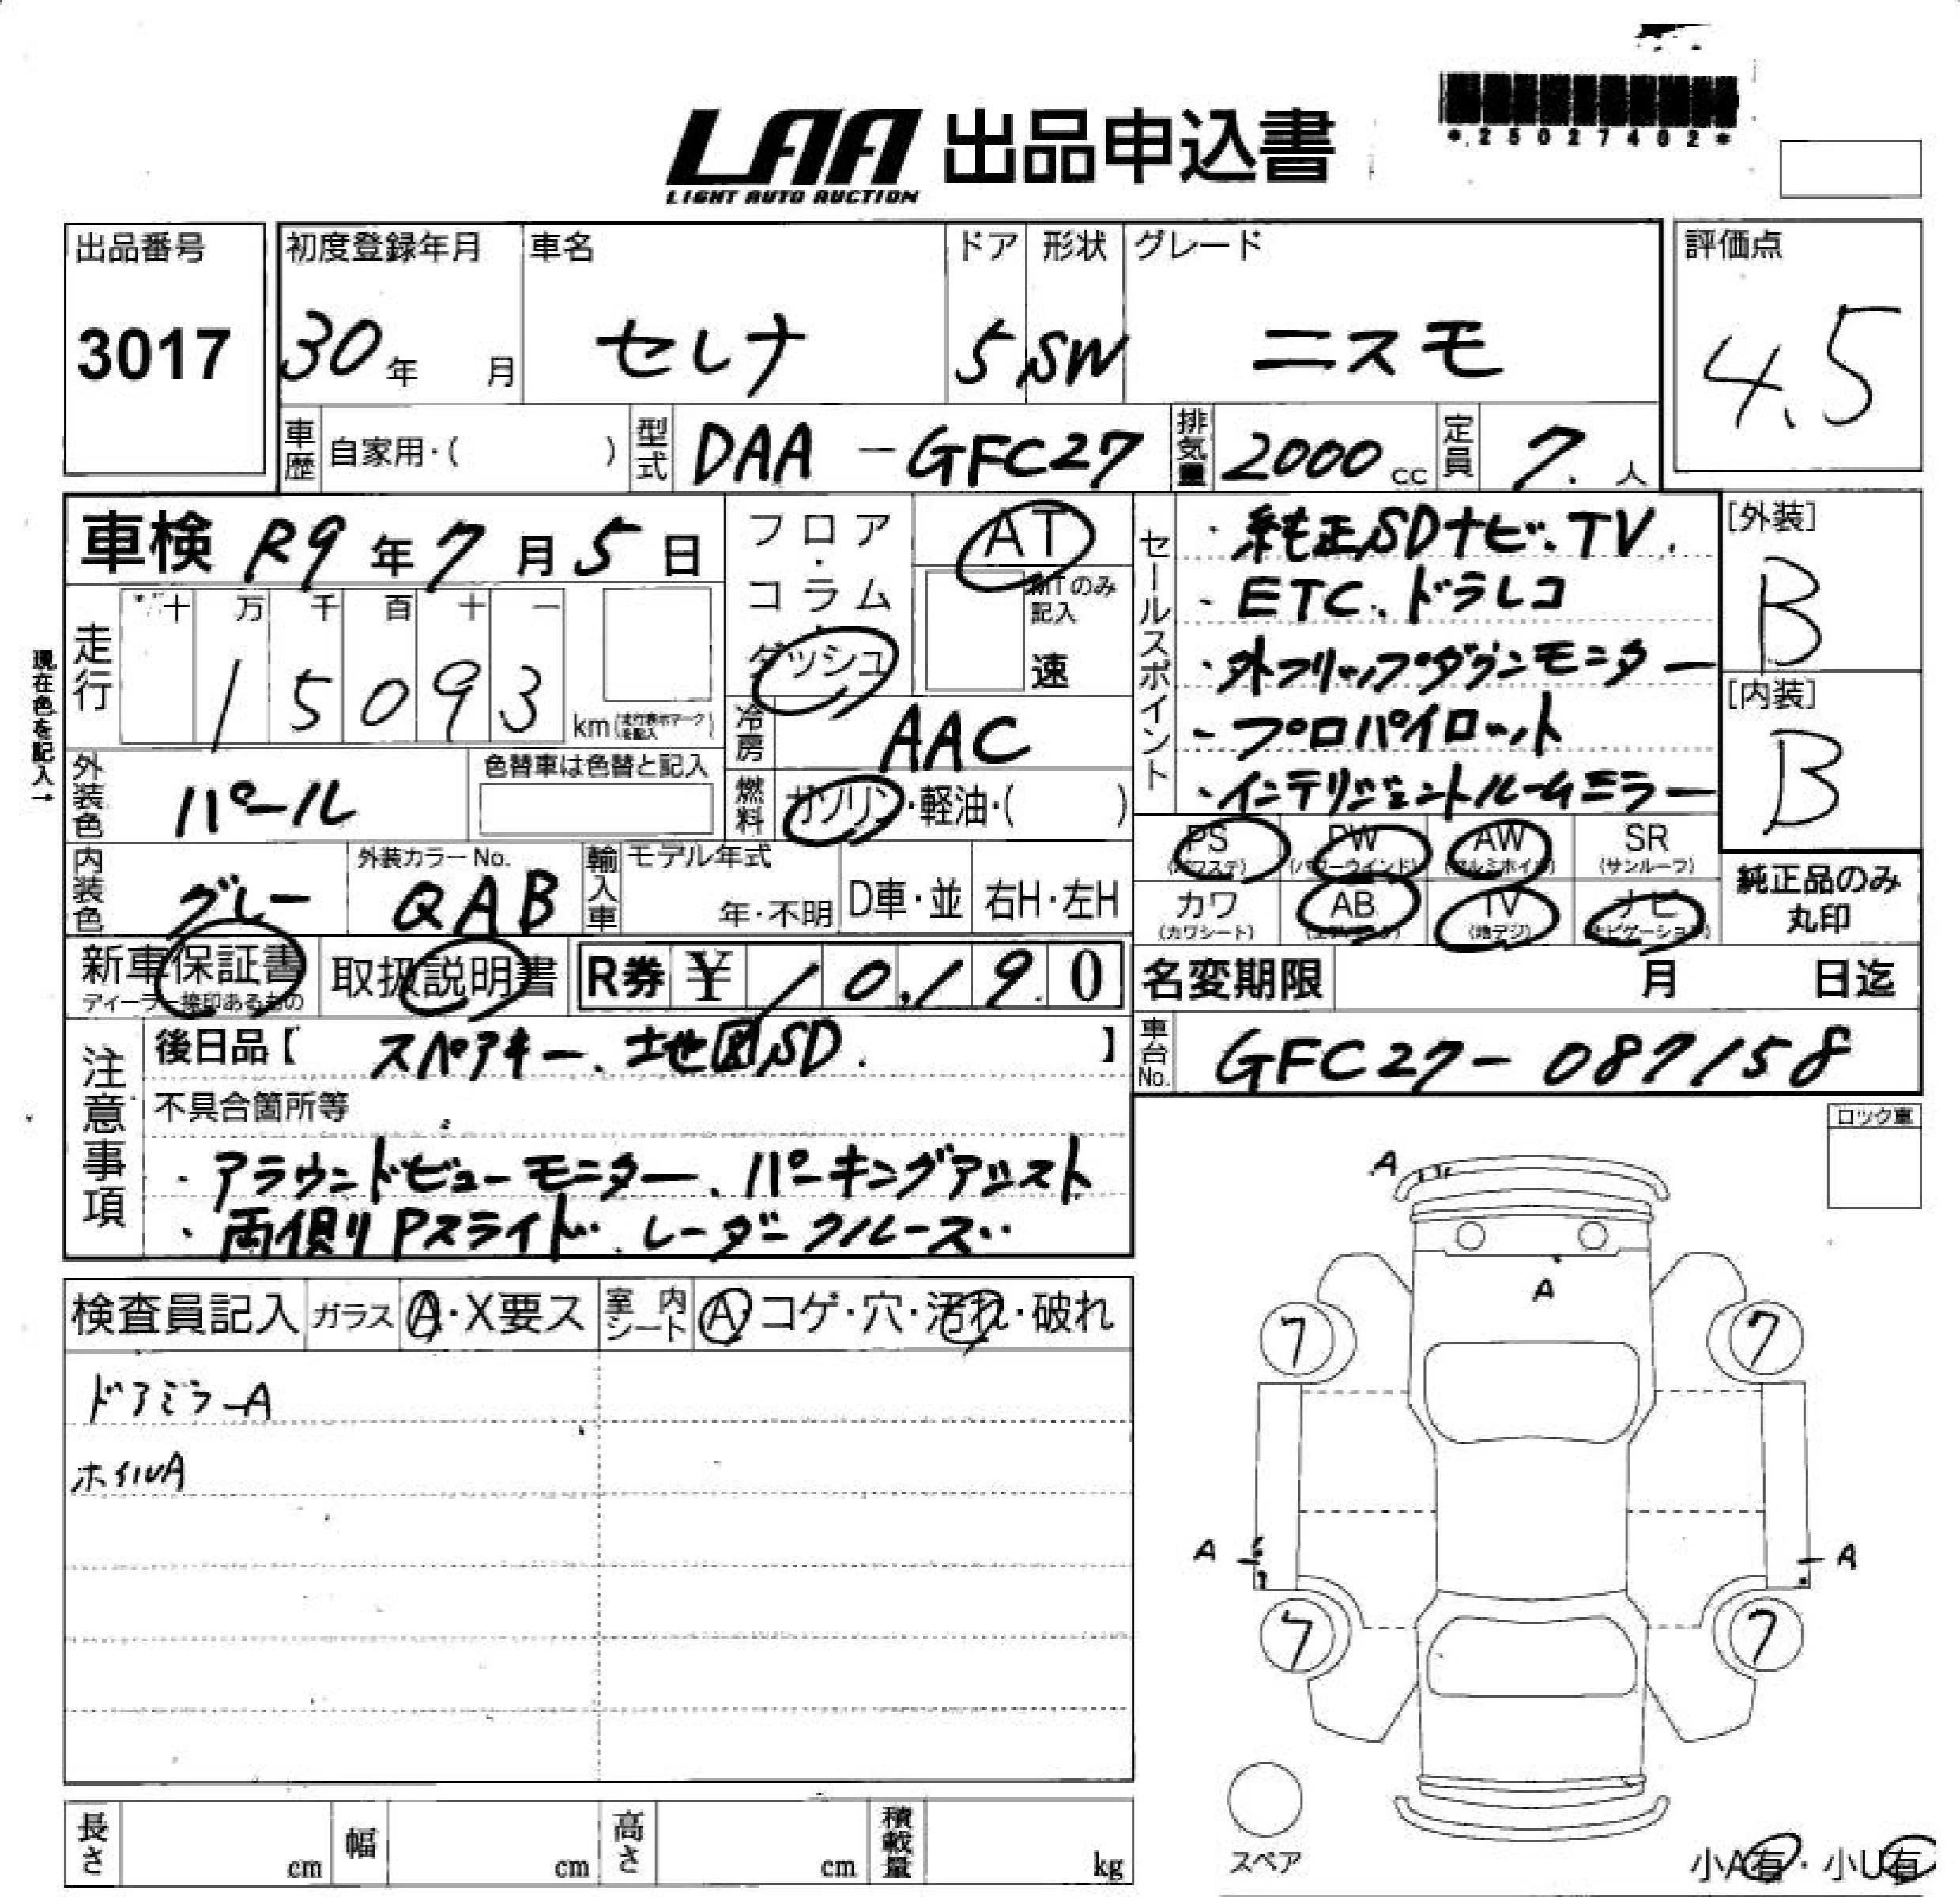 LAA 出品申込書
LIGHT AUTO AUCTION
*25027402*
出品番号
3017
初度登録年月
30年 月
車名
セレナ
ドア
5
形状
SW
グレード
ニスモ
評価点
4.5
車歴 自家用・( )
型式 DAA-GFC27
排気量 2000cc
定員 7.人
車検 R9年7月5日
フロア・コラム・ダッシュ
AT
MTのみ記入
速
セールスポイント
・純正SDナビ、TV.
・ETC、ドラレコ
・外フリップダウンモニター
・プロパイロット
・インテリジェントルームミラー
[外装]
B
[内装]
B
現在色を記入→
走行
十万千百十一
15093
km(走行表示マークを記入)
冷房 AAC
外装色 パール
色替車は色替と記入
燃料 ガソリン・軽油・( )
内装色 グレー
外装カラーNo.
QAB
輸入車
モデル年式
年・不明
D車・並
右H・左H
PS (パワステ)
PW (パワーウインド)
AW (アルミホイル)
SR (サンルーフ)
カワ (カワシート)
AB (エアバッグ)
TV (地デジ)
ナビ (ナビゲーション)
純正品のみ
丸印
新車保証書
ディーラー捺印あるもの
取扱説明書
R券 ¥10,190
名変期限 月 日迄
注意事項
後日品【 スペアキー、地図SD. 】
車台No. GFC27-087158
不具合箇所等
・アラウンドビューモニター、パーキングアシスト
・両側Pスライド、レーダークルーズ
ロック車
検査員記入
ガラス A・X要ス
室内シート A・コゲ・穴・汚れ・破れ
ドアミラーA
ホイルA
A
A
7 7
A A
7 7
スペア
小A有・小U有
長さ cm
幅 cm
高さ cm
積載量 kg